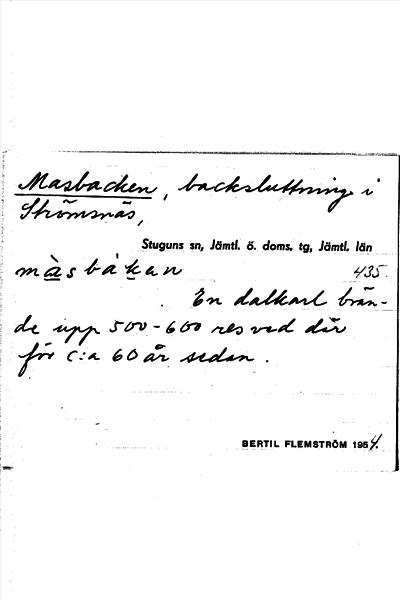 Masbacken, backsluttning i
Strömsnäs,
Stuguns sn, Jämtl. ö. doms. tg, Jämtl. län
màsbàkan 435.
En dalkarl brän-
de upp 500-600 resved där
för c:a 60 år sedan.
BERTIL FLEMSTRÖM 1954.